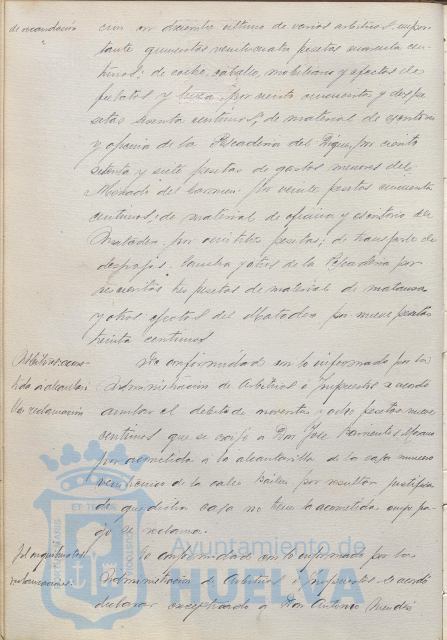 de recaudación
ción en diciembre último de varios arbitrios, impor-
tante quinientas veinticuatro pesetas cuarenta cén-
timos; de coche, caballo, mobiliario y efectos de
por ciento cincuenta y dos pe-
setas sesenta centimos; de material de escritorio
y oficina de la Pescadería del por ciento
setenta y siete pesetas de gastos menores del
Mercado del Carmen. Por veinte pesetas cincuenta
centimos; de material de oficina y escritorio del
Matadero por pesetas; de transporte de
despojos, y otros de la Pescadería por
pesetas de material de matanza
y otros efectos del Matadero por nueve pesetas
treinta centimos
Arbitrios: acome-
tida a alcantari-
lla reclamación
De conformidad con lo informado por la
Administración de Arbitrios é Impuestos se acordó
anular el débito de noventa y ocho pesetas nueve
centimos que se cargó a Don José Barrientos
por acometida á la alcantarilla de la casa número
veinticinco de la calle Bailén por resultar justificado
que dicha casa no tiene la acometida cuyo pa-
go se reclama.
reclamaciones
De conformidad con lo informado por la
Administración de Arbitrios é Impuestos se acordó
declarar exceptuado a Don Antonio Méndez
Ayuntamiento de
HUELVA